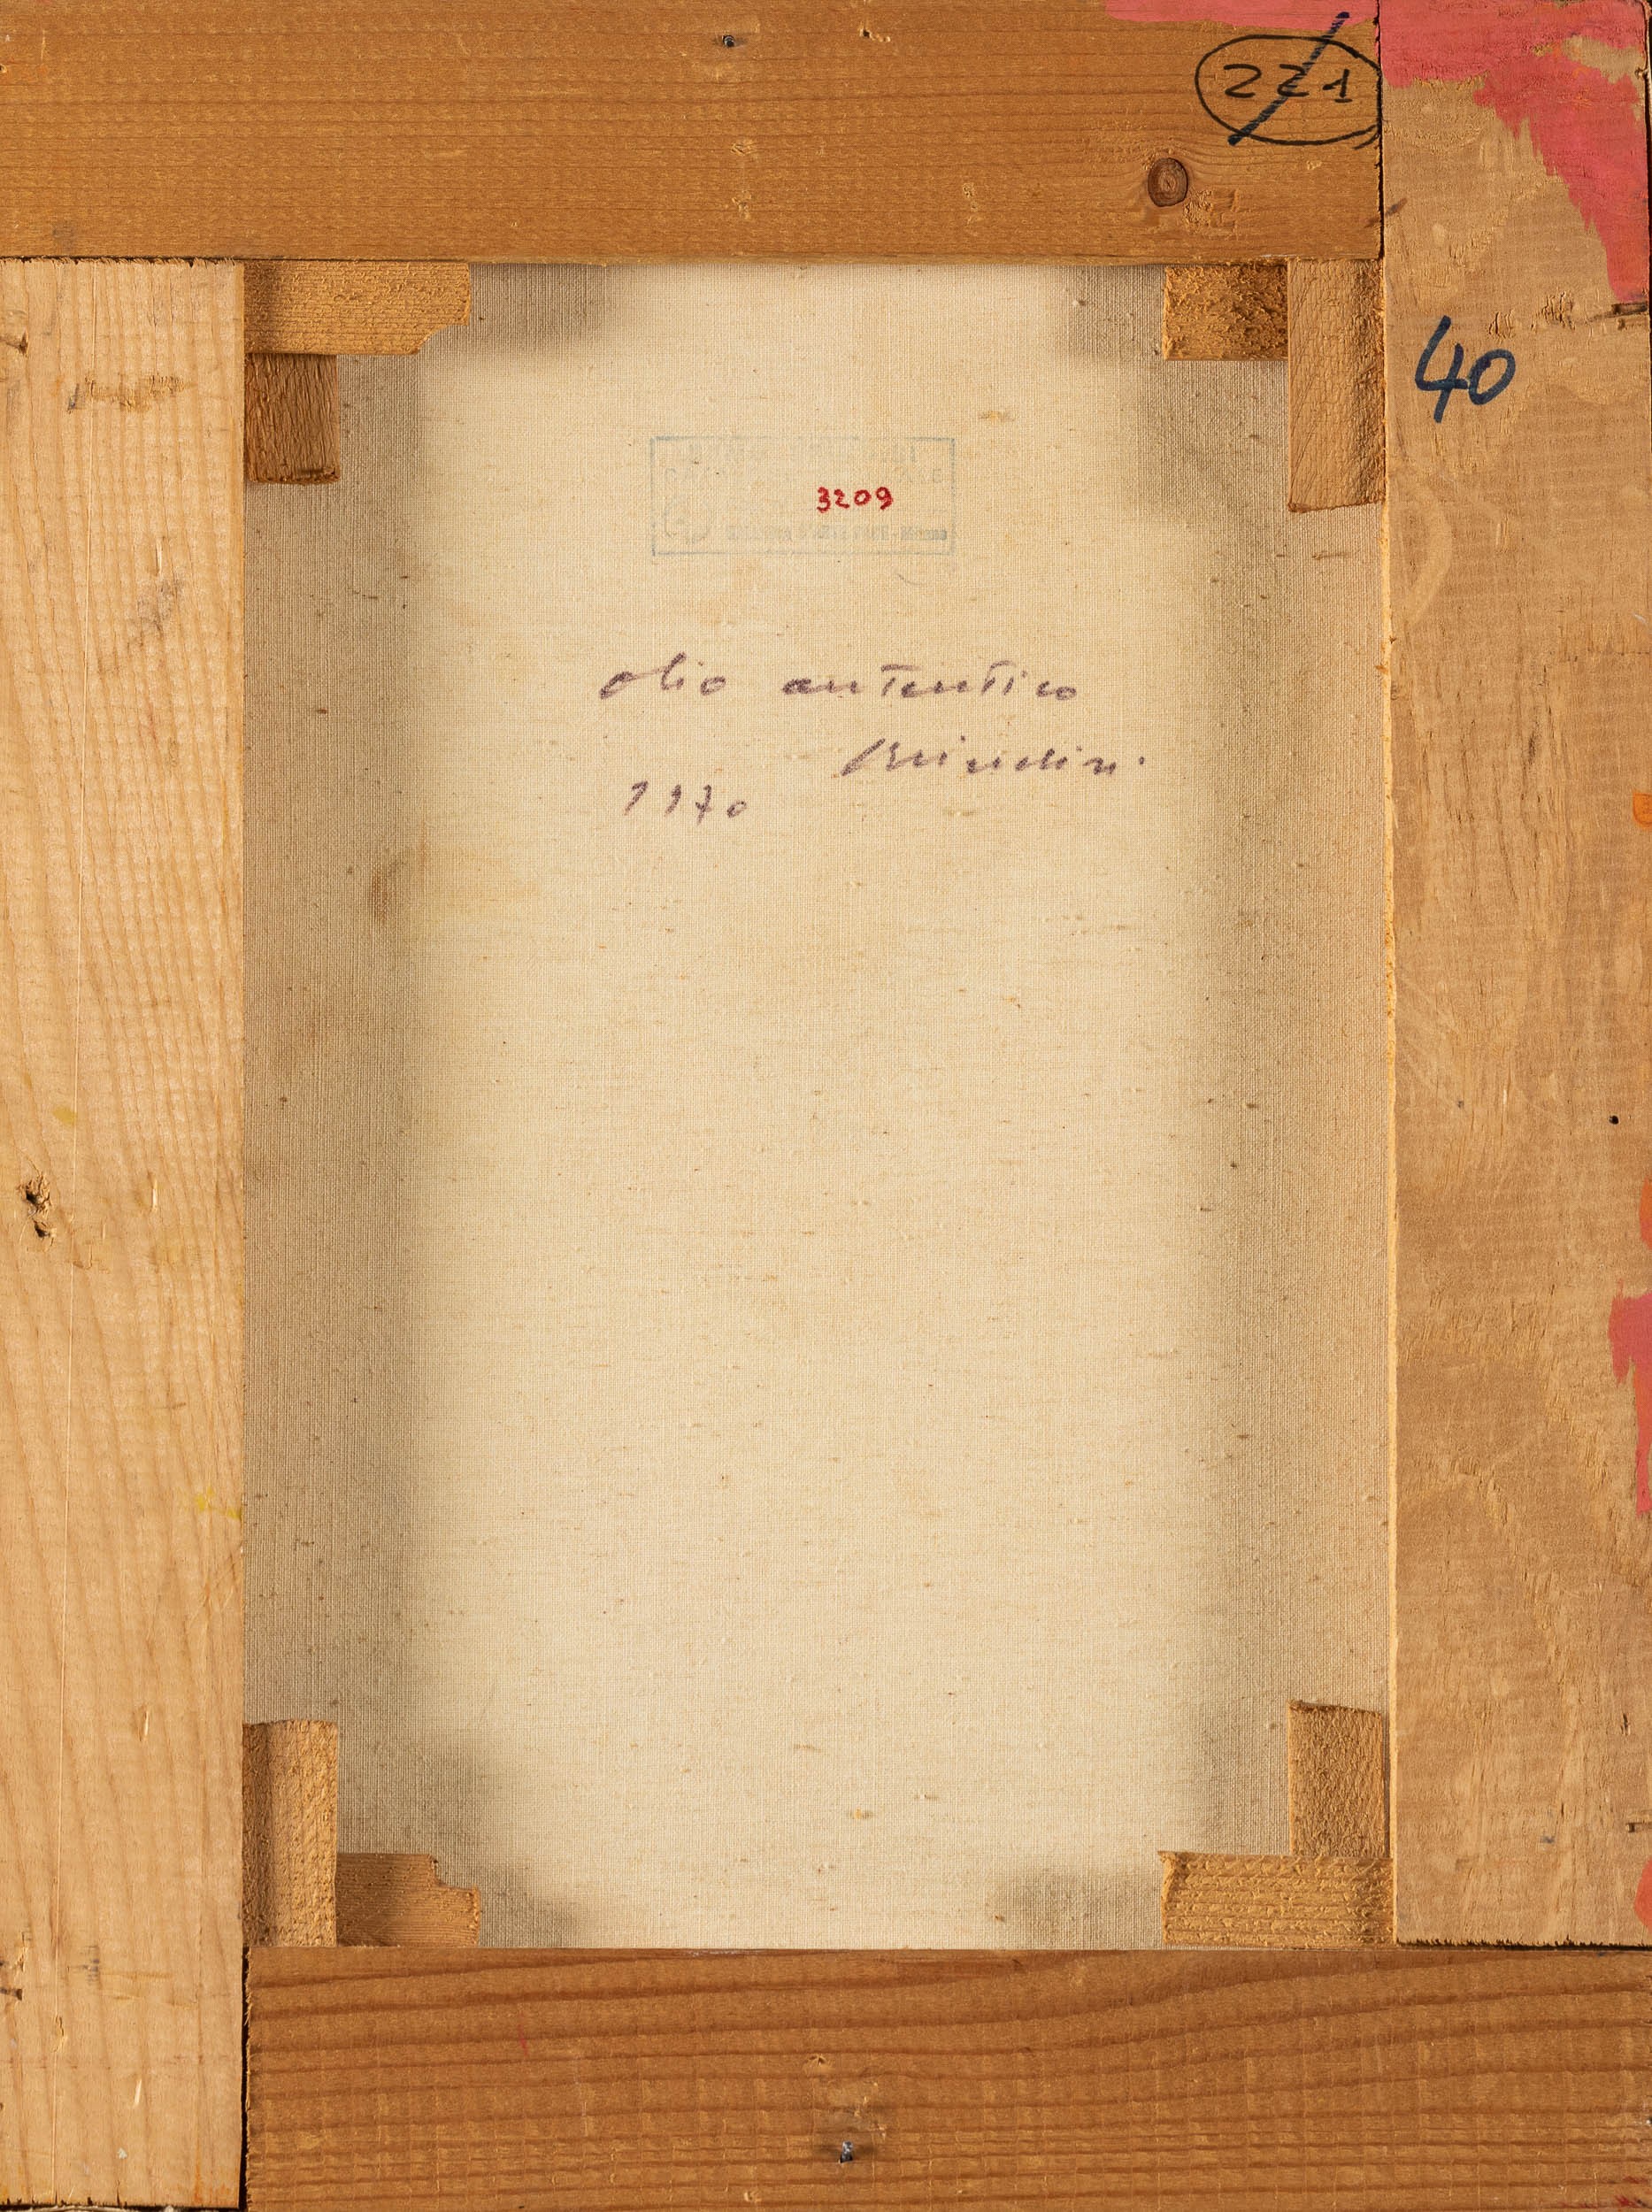 221
40
3209
olio autentico
Brindisi
1970